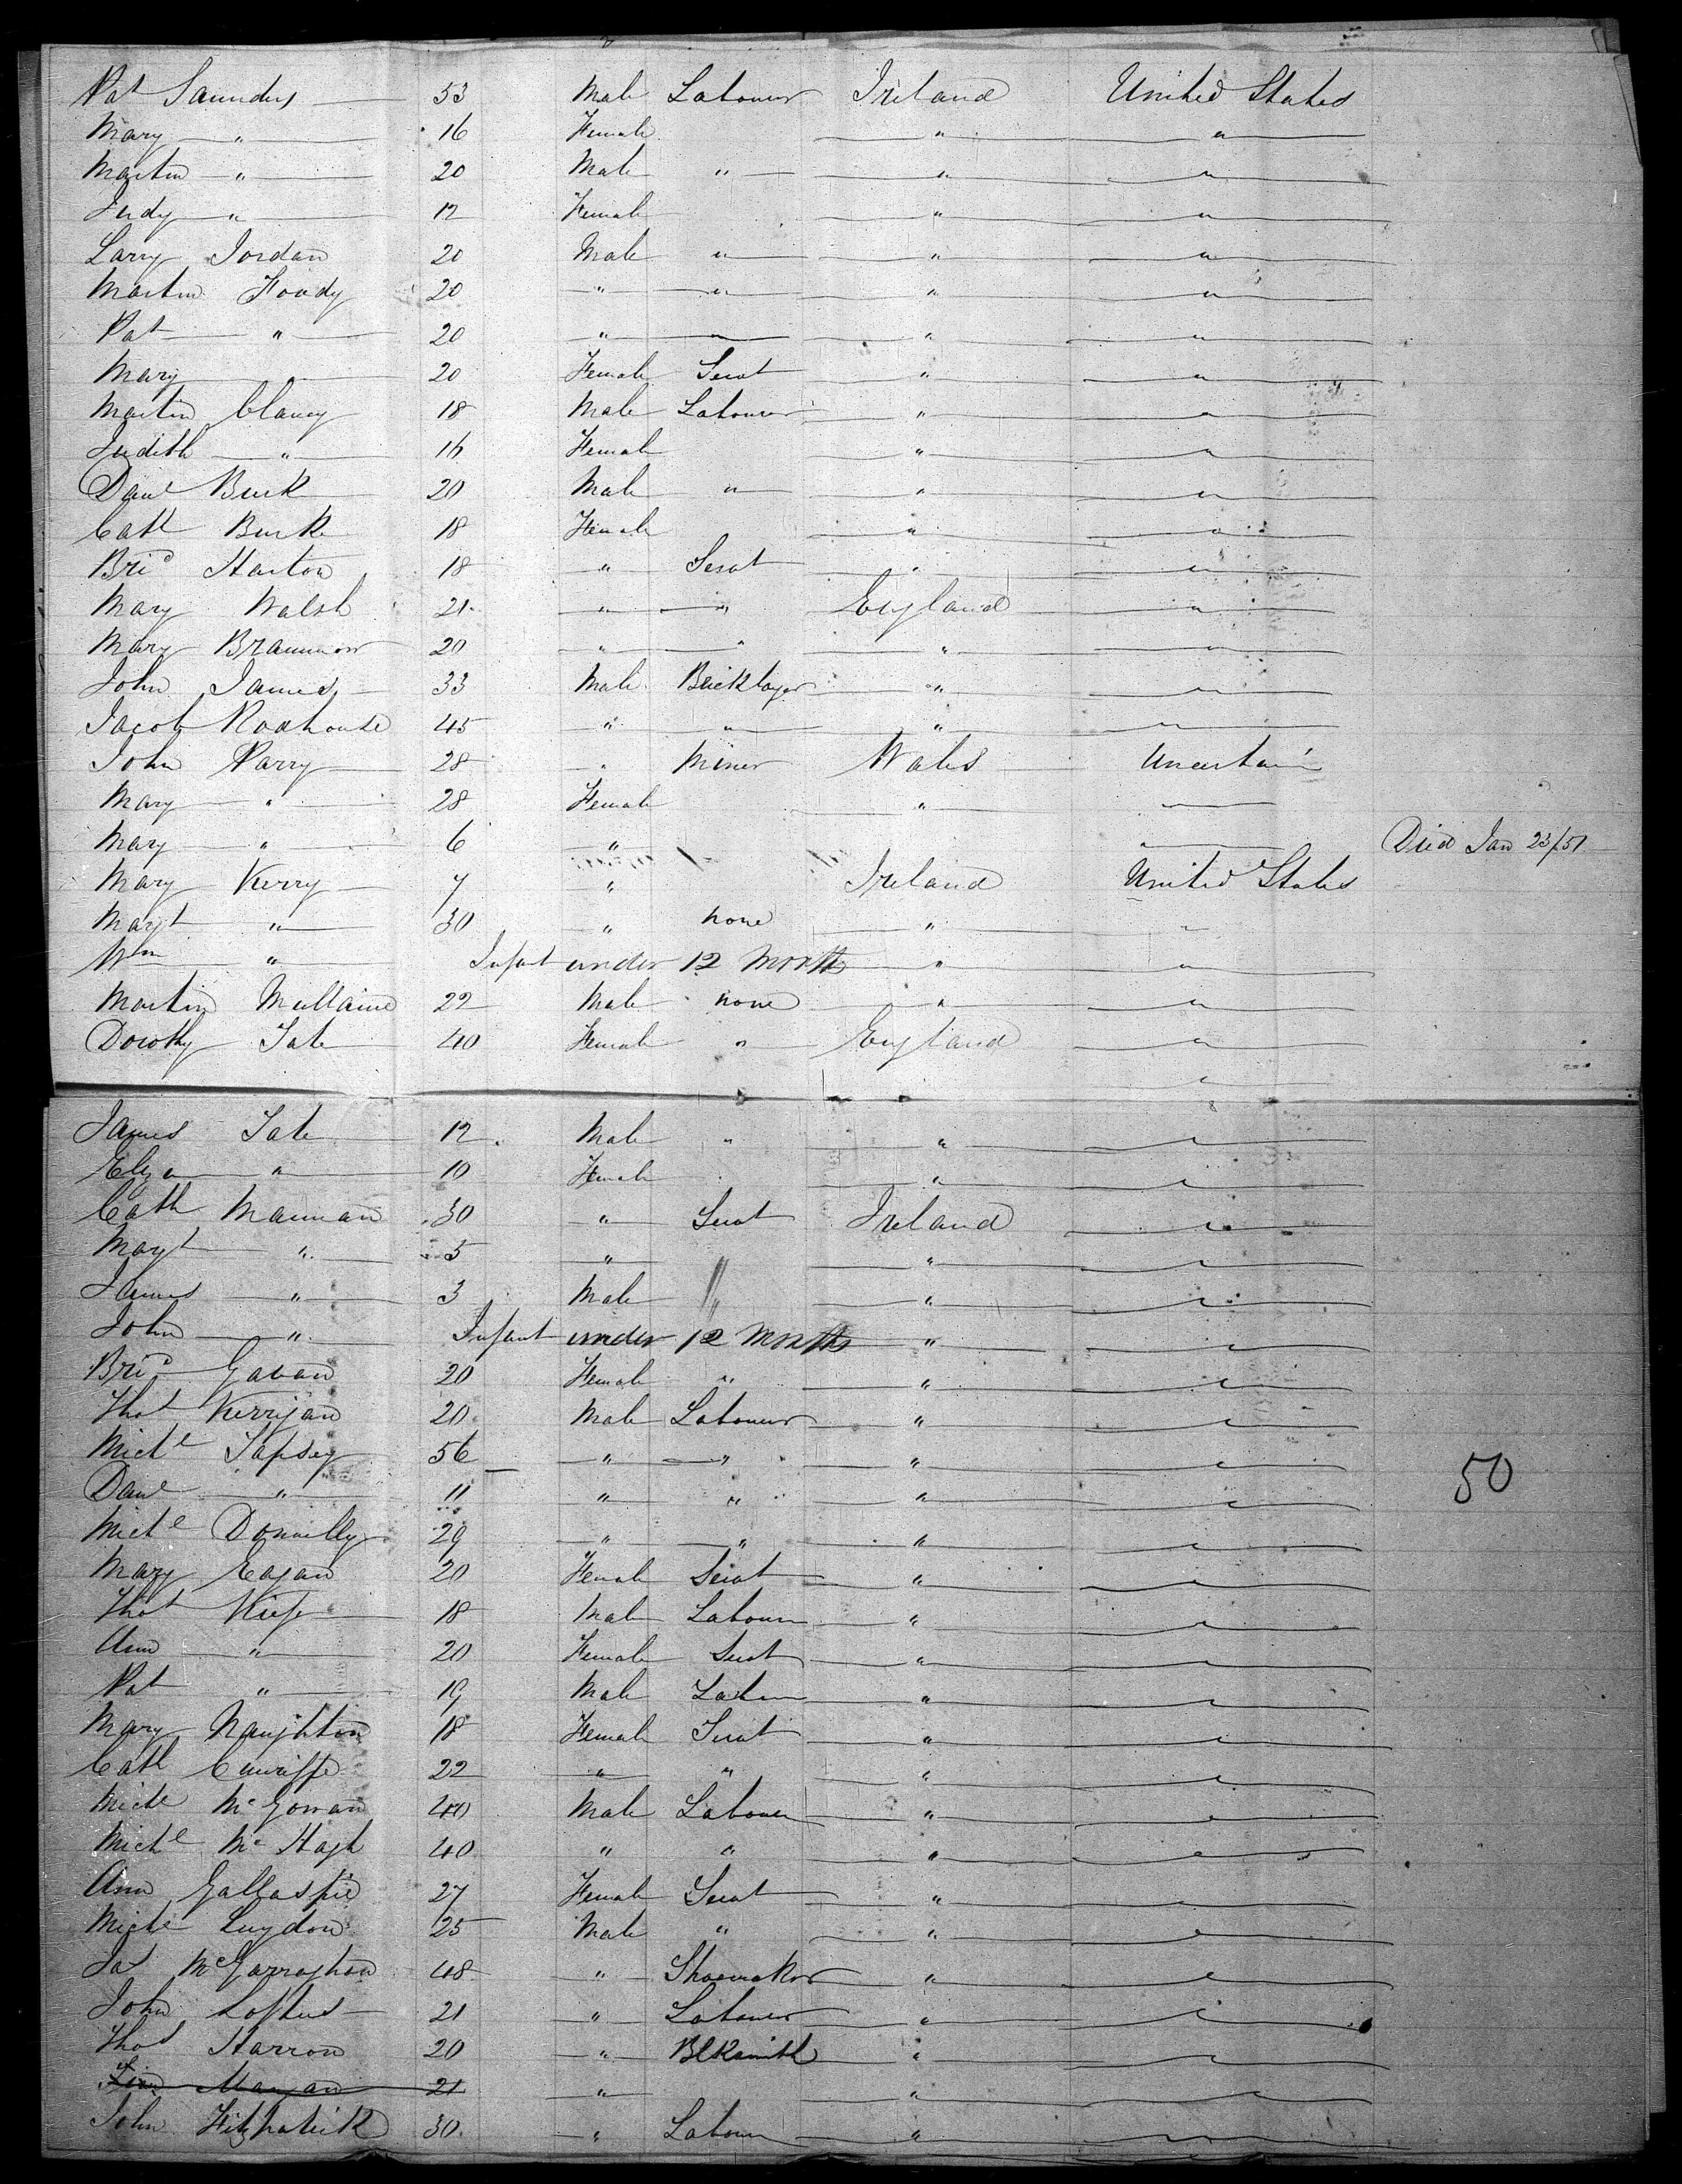 Pat Saunders 53 Male Labourer Ireland United States
Mary " 16 Female " "
Martin " 20 Male " " "
Judy " 12 Female " "
Larry Jordan 20 Male " " "
Martin Foody 20 " " " "
Pat " 20 " " " "
Mary " 20 Female Servt " "
Martin Clancy 18 Male Labourer " "
Judith " 16 Female " "
Danl Burk 20 Male " " "
Cath Burk 18 Female " "
Brid Harton 18 " Servt " "
Mary Walsh 21 " " England "
Mary Brannon 20 " " " "
John James 33 Male Bricklayer " "
Jacob Roxhouse 45 " " " "
John Parry 28 " Miner Wales Uncertain
Mary " 28 Female "
Mary " 6 " Died Jan 23/51
Mary Kerry 7 " Ireland United States
Margt " 30 " none " "
Wm " Infant under 12 Months " "
Martin Mullaine 22 Male none " "
Dorothy Tate 40 Female " England "
"
James Tate 12 Male " " "
Eliza " 10 Female " "
Cath Mannan 30 " Servt Ireland "
Margt " 5 " " "
James " 3 Male " "
John " Infant under 12 Months " "
Brid Gavan 20 Female " " "
Thos Kerrigan 20 Male Labourer " "
Michl Tapsey 56 " " " "
Danl " 11 " " " "
50
Michl Donnelly 29 " " " "
Mary Eagan 20 Female Servt " "
Thos Kiefe 18 Male Labour " "
Ann " 20 Female Servt " "
Pat " 19 Male Labour " "
Mary Naughton 18 Female Servt " "
Cath Cunniffe 22 " " " "
Michl McGowan 40 Male Labourer " "
Michl McHagh 40 " " " "
Ann Gallaspie 27 Female Servt " "
Michl Luydon 25 Male " " "
Jas McGarraghan 48 " Shoemaker " "
John Loftus 21 " Labourer " "
Thos Harron 20 " Blksmith " "
21 " " "
John Fitzpatrick 30 " Labour " "